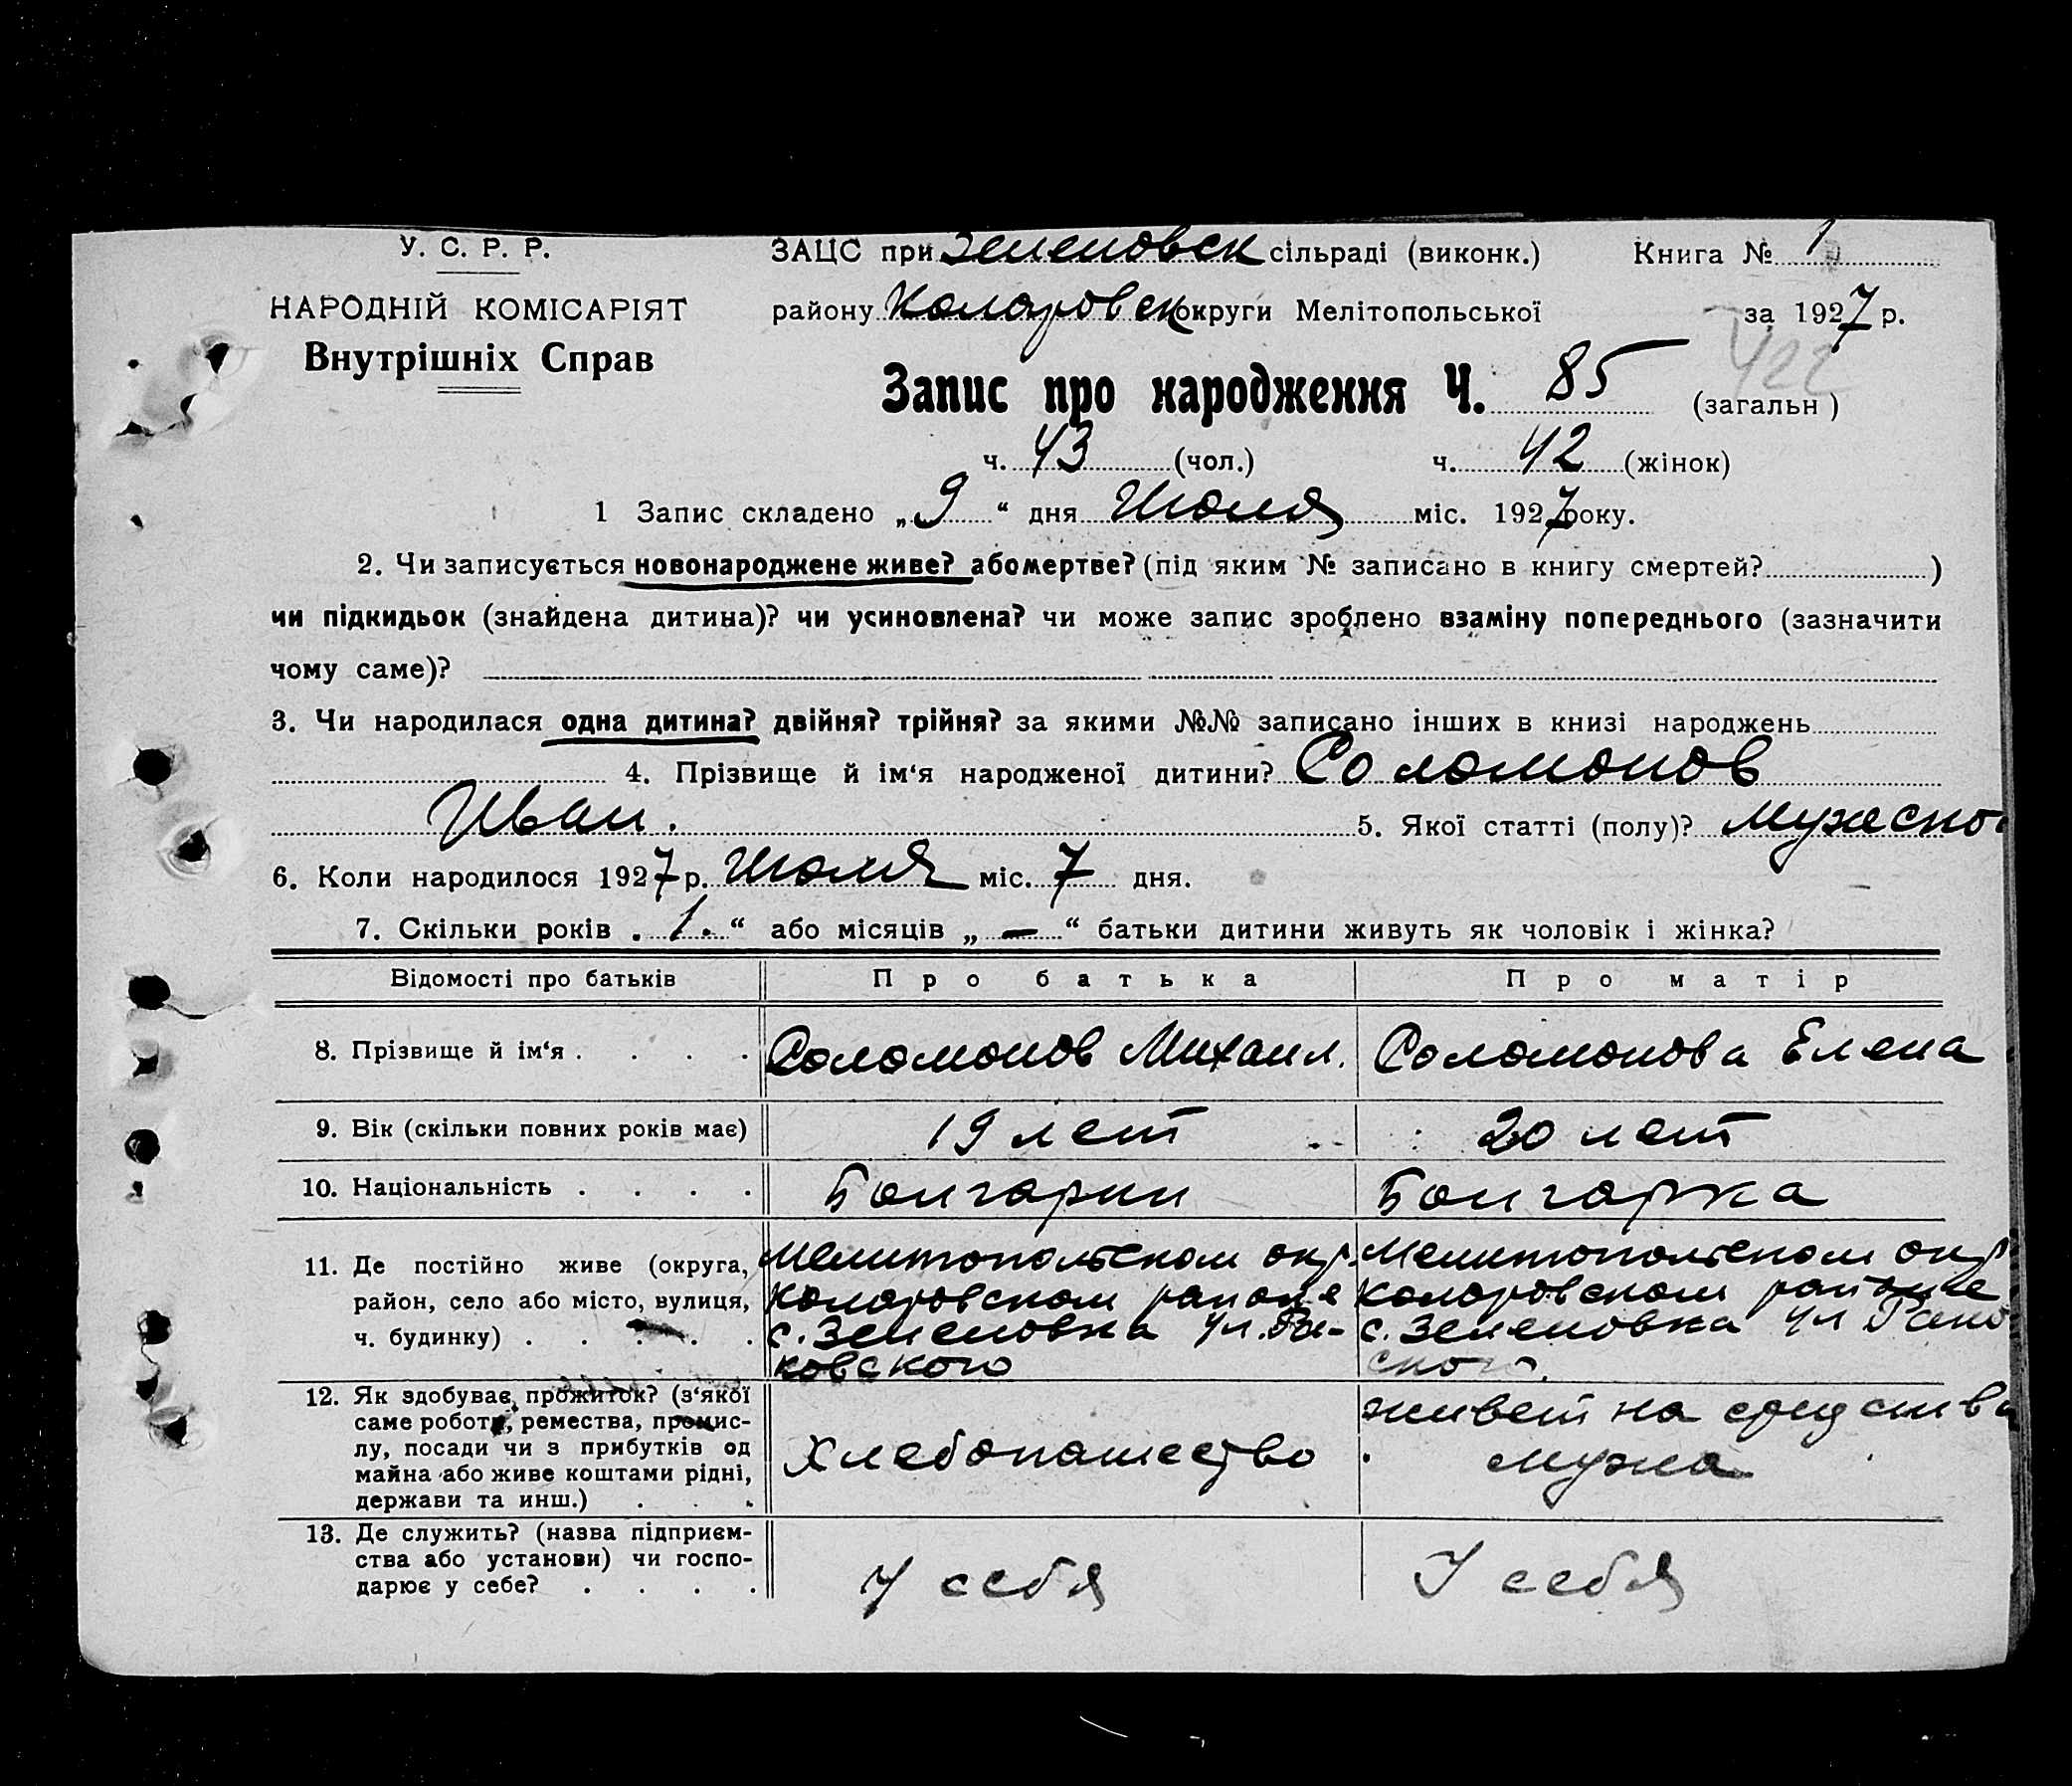 У. С. Р. Р.
ЗАЦС при Зеленовск сільраді (виконк.) Книга № 1
НАРОДНІЙ КОМІСАРІЯТ
району Коларовск округи Мелітопольської за 1927 р.
Внутрішніх Справ
422
Запис про народження Ч. 85 (загальн )
ч. 43 (чол.) ч. 42 (жінок)
1 Запис складено „9“ дня Июля міс. 1927 року.
2. Чи записується новонароджене живе? або мертве? (під яким № записано в книгу смертей? )
чи підкидьок (знайдена дитина)? чи усиновлена? чи може запис зроблено взаміну попереднього (зазначити
чому саме)?
3. Чи народилася одна дитина? двійня? трійня? за якими №№ записано інших в книзі народжень
4. Прізвище й ім‘я народженої дитини? Соломонов
Иван. 5. Якої статті (полу)? Мужеско
6. Коли народилося 1927 р. Июля міс. 7 дня.
7. Скільки років „1.“ або місяців „—“ батьки дитини живуть як чоловік і жінка?
Відомості про батьків Про батька Про матір
8. Прізвище й ім‘я . . . . Соломонов Михаил. Соломонова Елена
9. Вік (скільки повних років має) 19 лет 20 лет
10. Національність . . . . Болгарин Болгарка
11. Де постійно живе (округа,
район, село або місто, вулиця,
ч. будинку) . . . . .
Мелитопольском окр.
Коларовском районе
с. Зеленовка ул.
ковского
Мелитопольском окр
Коларовском районе
с. Зеленовка ул
ского.
12. Як здобуває прожиток? (з‘якої
саме роботи, ремества, промис-
лу, посади чи з прибутків од
майна або живе коштами рідні,
держави та инш.) . . .
Хлебопашество
живет на средства
мужа
13. Де служить? (назва підприєм-
ства або установи) чи госпо-
дарює у себе? . . . .
У себя
У себя